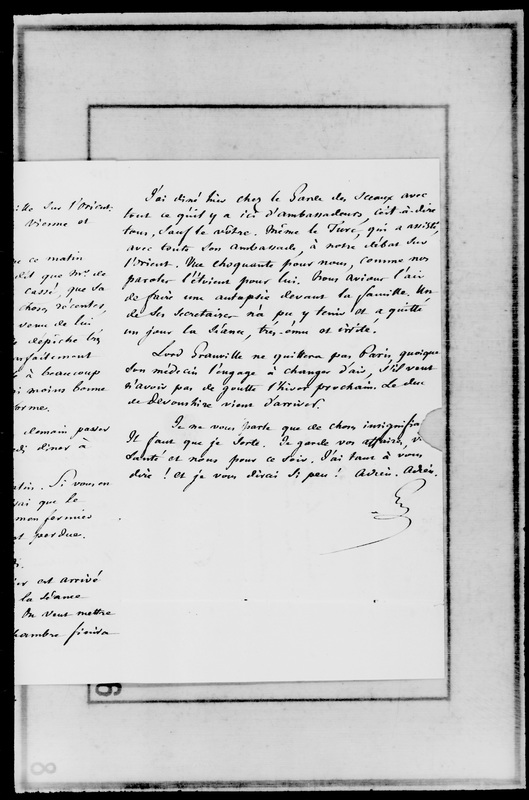 ille sur l'Orient.
Vienne et
ce matin
dit que Mr. de
cassé, que sa
choses récentes,
venu de lui
dépêche très
rfaitement
à beaucoup
moins bonne
forme.
demain passer
di diner à
Si vous en
sai que le
mon fermier
st perdue.
ier est arrivé
la séance
On veut mettre
hambre finira
J'ai diné hier chez le Garde des Sceaux avec
tout ce qu'il y a ici d'ambassadeurs, c'est-à-dire
tous, sauf le nôtre. Même le Turc, qui a assisté,
avec toute son ambassade, à notre débat sur
l'Orient. Vue choquante pour nous, comme nos
paroles l'étoient pour lui. Nous avions l'air
de faire une autopsie devant la famille. Un
de ses Secretaires n'a pu y tenir et a quitté
un jour la Séance, très ému et irrité.
Lord Granville ne quittera pas Paris, quoique
son médecin l'engage à changer d'air, s'il veut
n'avoir pas de goutte l'hiver prochain. Le duc
de Devonshire vient d'arriver.
Je ne vous parle que de choses insignifia
Il faut que je sorte. Je garde vos affaires, v
santé et nous pour ce soir. J'ai tant à vous
dire ! et je vous dirai si peu ! Adieu. Adieu.
G
8